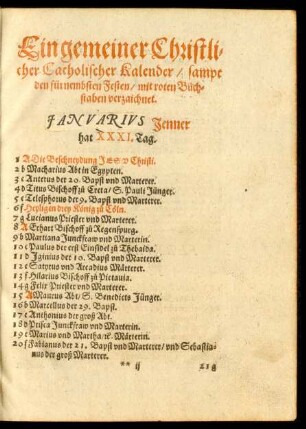 Ein gemeiner Christli-
cher Catholischer Kalender / sampt
den fürnembsten Festen / mit roten Büch-
staben verzaichnet.
JANVARIVS Jenner
hat XXXI. Tag.
1 A Die Beschneydung JESV Christi.
2 b Macharius Abt in Egypten.
3 c Anterus der 20. Bapst vnd Marterer.
4 d Titus Bischoff zu Creta / S. Pauli Jünger.
5 e Telesphorus der 9. Bapst vnd Marterer.
6 f Heyligen drey König zu Cöln.
7 g Lucianus Priester vnd Marterer.
8 A Erhart Bischoff zu Regenspurg.
9 b Martiana Junckfraw vnd Marterin.
10 c Paulus der erst Einsidel zu Thebaida.
11 d Iginius der 10. Bapst vnd Marterer.
12 e Satyrus vnd Arcadius Märterer.
13 f Hilarius Bischoff zu Pictauia.
14 g Felix Priester vnd Marterer.
15 A Maurus Abt / S. Benedicts Jünger.
16 b Marcellus der 29. Bapst.
17 c Anthonius der groß Abt.
18 d Prisca Junckfraw vnd Marterin.
19 e Marius vnd Martha / rc. Märterin.
20 f Fabianus der 21. Bapst vnd Marterer / vnd Sebastia-
nus der groß Marterer.
** ij 21 g